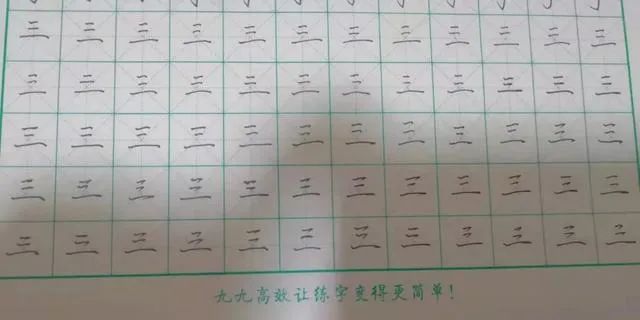 三三三三三三三三三三三三
三三三三三三三三三三三三
三三三三三三三三三三三三
三三三三三三三三三三三三
三三三三三三三三三三三三
九九高效让练字变得更简单!